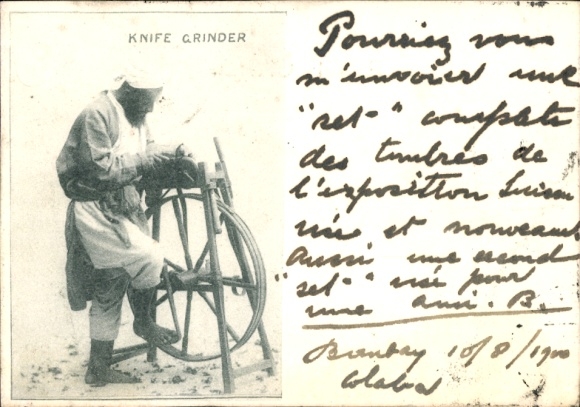 KNIFE GRINDER
Pourriez vous
m'envoier une
"set" complete
des timbres de
l'exposition Suisse
et nouveaux
aussi une second
"set" pour
une ami. B.
Bombay 10/8/1900
Colaba